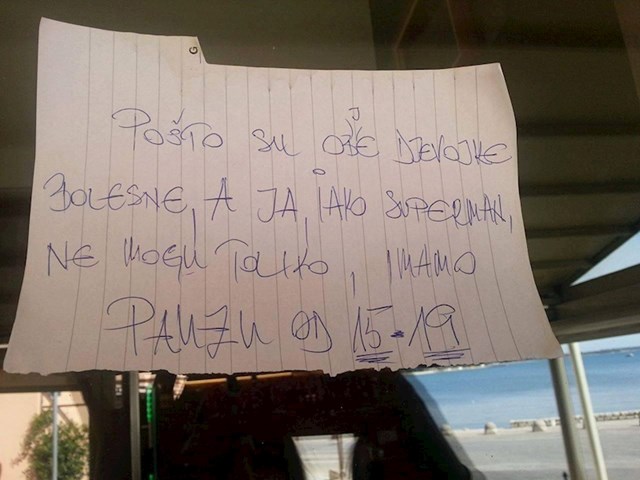 POŠTO SU OBJE DJEVOJKE
BOLESNE, A JA, IAKO SUPERMAN,
NE MOGU TOLIKO, IMAMO
PAUZU OD 15-19